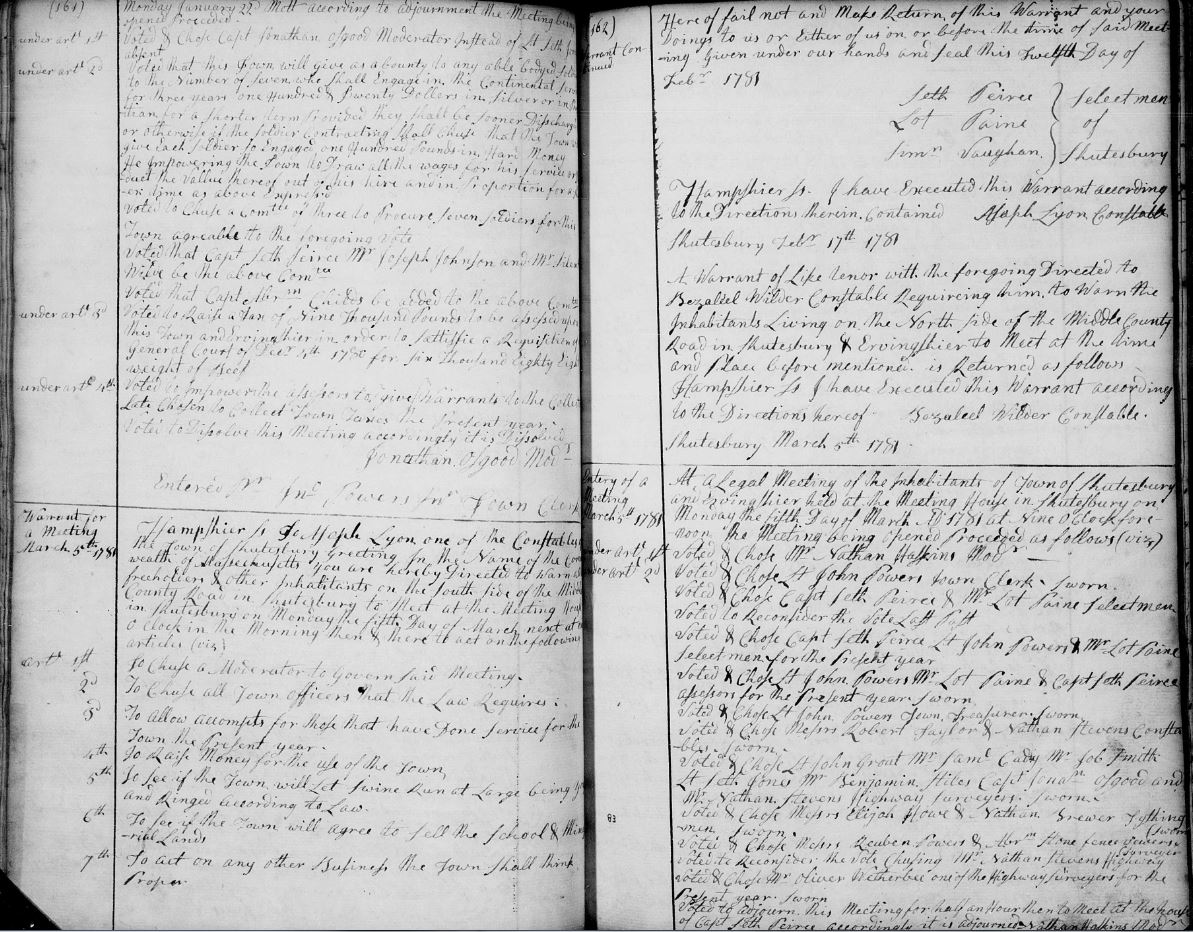 (161)
Monday January 22d Mott according to adjournment the Meeting being
opened Proceeded.
under artl 1st
Voted & Chose Capt Jonathan Osgood Moderator Instead of Lt Seth
absent
under artl 2d
Voted that this Town will give as a bounty to any able bodyed
to the Number of Seven who Shall Engage in the Continental
for three years one Hundred & Twenty Dollers in Silver or in
tion for a Shorter term Provided they shall be Sooner Disscharg
or otherwise if the Soldier Contracting Shall Chuse that the Town
give Each Soldier so Engaged one Hundred Pounds in Hard Money
He Impowering the Town to Draw all the wages for his Service or
duct the Vallue thereof out of his hire and in Proportion for
er time as above Expressd
Voted to Chuse a Comtee of three to Procure Seven Soldiers for this
Town agreable to the foregoing Vote
Voted that Capt Seth Peirce Mr Joseph Johnson and Mr
be the above Comtee
Voted that Capt Abrm Childs be added to the above Comtee
under artl 3d
Voted to Raise a Tax of Nine Thousand Pounds to be assessed upon
this Town and Ervingshier in order to Sattisfie a Requisition
General Court of Decr 4th 1780 for Six Thousand Eighty Eigh
weight of Beef
under artl 4th
Voted to Impower the assessors to give Warrants to the
Late Chosen to Collect Town Taxes the Present year.
Voted to Dissolve this Meeting accordingly it is Dissolved
Jonathan Osgood Modr
Entered pr Jno Powers Jnr Town Clerk
Warrant for
a Meeting
March 5th 1781
Hampshier Ss To Asaph Lyon one of the Constables
the Town of Shutesbury Greeting In the Name of the
wealth of Massachusetts you are hereby Directed to Warn
freeholders & other Inhabitants on the South side of the
County Road in Shutesbury to Meet at the Meeting House
in Shutesbury on Monday the fifth Day of March next at
o Clock in the Morning then & there to act on the following
articles (viz)
artl 1st
To Chuse a Moderator to Govern Said Meeting.
2d
To Chuse all Town officers that the Law Requires.
3d
To Allow accompts for those that have Done Service for the
Town the Present year.
4th
To Raise Money for the use of the Town,
5th
To See if the Town will Let Swine Run at Large being
and Ringed according to Law.
6th
To See if the Town will agree to Sell the School &
-rial Lands
7th
To act on any other Business the Town Shall think
Proper
(162)
Warrant Con-
tinued
Here of fail not and Make Return of this Warrant and your
Doings to us or Either of us on or before the time of Said Meet-
-ing Given under our hands and Seal this Twelfth Day of
Febr 1781
Seth Peirce
Lot Paine
Vaughan
Selectmen
of
Shutesbury
Hampshier Ss. I have Executed this Warrant according
to the Directions therein Contained Asaph Lyon Constable
Shutesbury Febr 17th 1781
A Warrant of Like tenor with the foregoing Directed to
Bezaleel Wilder Constable Requireing him to Warn the
Inhabitants Living on the North Side of the Middle County
Road in Shutesbury & Ervingshier to Meet at the time
and Place before mentioned is Returned as follows
Hampshier Ss I have Executed this Warrant according
to the Directions hereof Bezaleel Wilder Constable.
Shutesbury March 5th 1781
Entery of a
Meeting
March 5th 1781
At a Legal Meeting of the Inhabitants of Town of Shutesbury
and Ervingshier held at the Meeting House in Shutesbury on
Monday the fifth Day of March AD 1781 at Nine o Clock fore-
noon the Meeting being opened Proceeded as follows (viz)
under artl 1st
Voted & Chose Mr Nathan Haskins Modr
under artl 2d
Voted & Chose Lt John Powers Town Clerk Sworn.
Voted & Chose Capt Seth Peirce & Mr Lot Paine Selectmen
Voted to Reconsider the Vote Last Past
Voted & Chose Capt Seth Peirce Lt John Powers & Mr Lot Paine
Selectmen for the Present year
Voted & Chose Lt John Powers Mr Lot Paine & Capt Seth Peirce
assessors for the Present year Sworn
Voted & Chose Lt John Powers Town Treasurer. Sworn
Voted & Chose Messrs Robert Taylor & Nathan Stevens Consta
bles. Sworn.
Voted & Chose Lt John Grout Mr Saml Cady Mr Job Smith
Lt Seth Jones Mr Benjamin Hiles Capt Jonan Osgood and
Mr Nathan Stevens Highway Surveyers. Sworn.
Voted & Chose Messrs Elijah Howe & Nathan Brewer Tything
men. Sworn
83
Voted & Chose Messrs Reuben Powers & Abrm Stone fence Viewers
Voted to Reconsider the Vote Chusing Mr Nathan Stevens Highway Surveyer
Voted & Chose Mr Oliver Wetherbee one of the Highway Surveyers for the
Present year. Sworn
Voted to adjourn this Meeting for half an Hour then to Meet at the house
of Capt Seth Peirce accordingly it is adjourned Nathan Haskins Modr